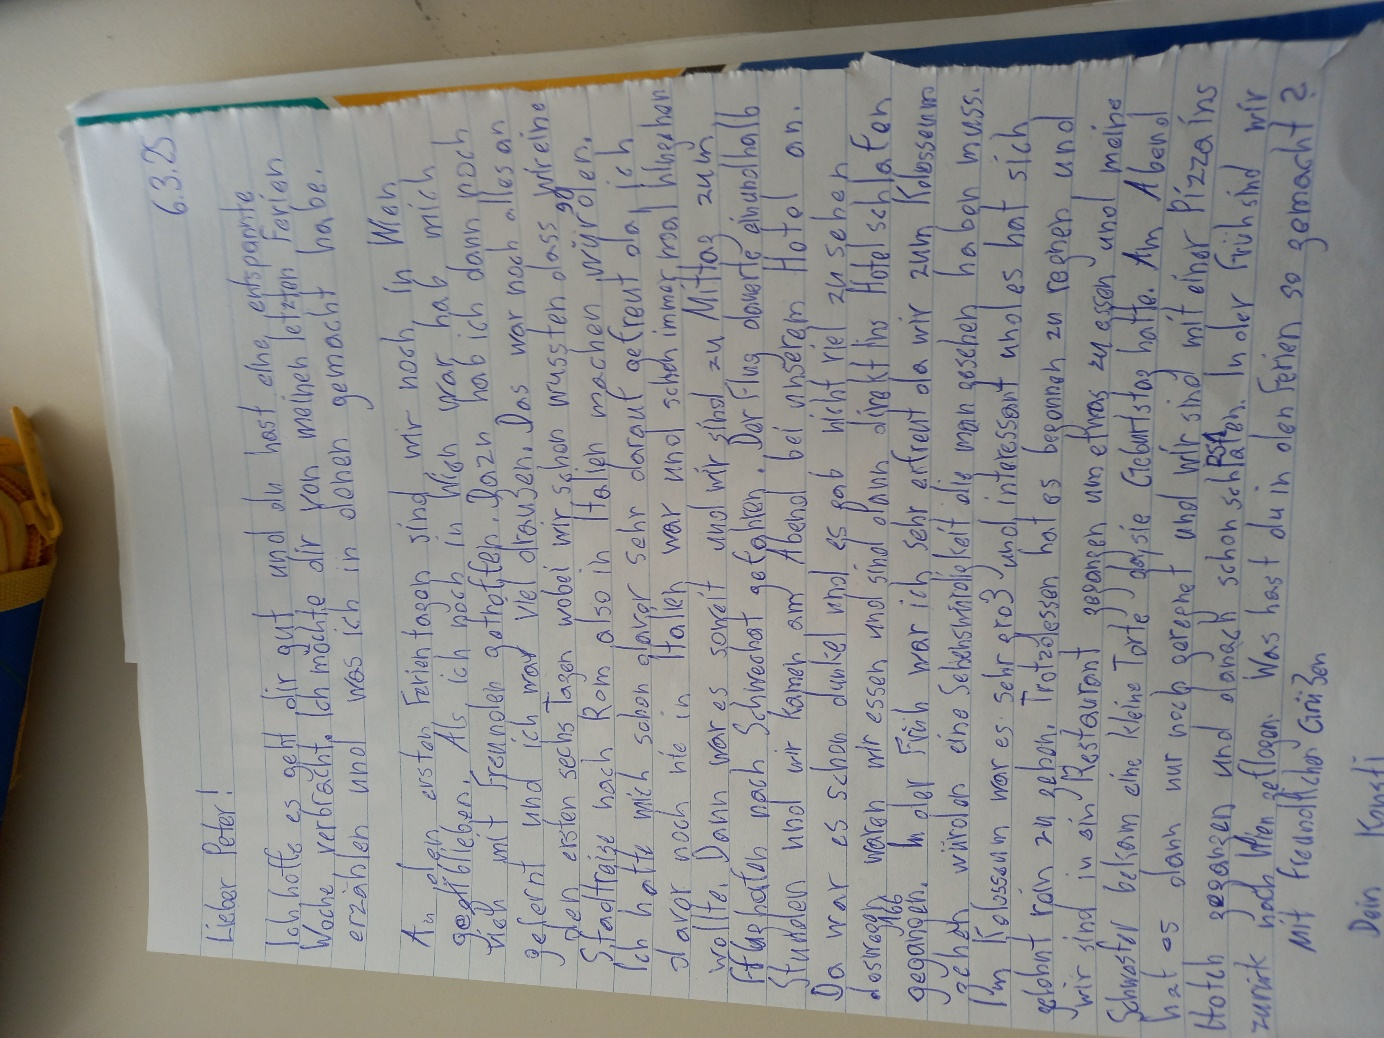 6.3.25
Lieber Peter!
Ich hoffe es geht dir gut und du hast eine entspannte
Woche verbracht. Ich möchte dir von meinen letzten Ferien
erzählen und was ich in denen gemacht habe.
An den ersten Ferientagen sind wir noch in Wien
geblieben. Als ich noch in Wien war hab mich
viel mit Freunden getroffen. Dazu hab ich dann noch
gelernt und ich war viel draußen. Das war noch alles an
den ersten sechs Tagen wobei wir schon wussten dass wir eine
Stadtreise nach Rom also in Italien machen würden.
Ich hatte mich schon davor sehr darauf gefreut da ich
davor noch nie in Italien war und schon immer mal hingehen
wollte. Dann war es soweit und wir sind zu Mittag zum
Flughafen nach Schwechat gefahren. Der Flug dauerte einundhalb
Stunden und wir kamen am Abend bei unserem Hotel an.
Da war es schon dunkel und es gab nicht viel zu sehen
deswegen waren wir essen und sind dann direkt ins Hotel schlafen
gegangen. In der Früh war ich sehr erfreut da wir zum Kolosseum
gehen würden eine Sehenswürdigkeit die man gesehen haben muss.
Im Kolosseum war es sehr groß und interessant und es hat sich
gelohnt rein zu gehen. Trotzdessen hat es begonnen zu regnen und
wir sind in ein Restaurant gegangen um etwas zu essen und meine
Schwester bekam eine kleine Torte da sie Geburtstag hatte. Am Abend
hat es dann nur noch geregnet und wir sind mit einer Pizza ins
Hotel gegangen und danach schon schlafen. In der Früh sind wir
zurück nach Wien geflogen. Was hast du in den Ferien so gemacht?
Mit freundlichen Grüßen
Dein Konsti